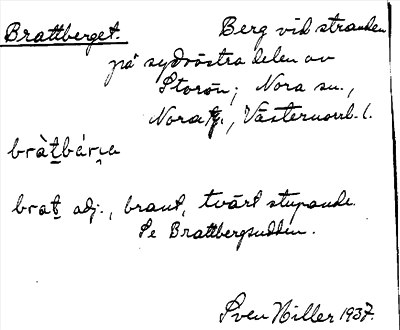 Brattberget. Berg vid stranden
på sydvästra delen av
Storön; Nora sn.,
Nora tg., Västernorrl. l.
bràt̲bár̯a
brat̲ adj., brant, tvärt stupande.
Se Brattbergsudden.
Sven Hiller 1937.